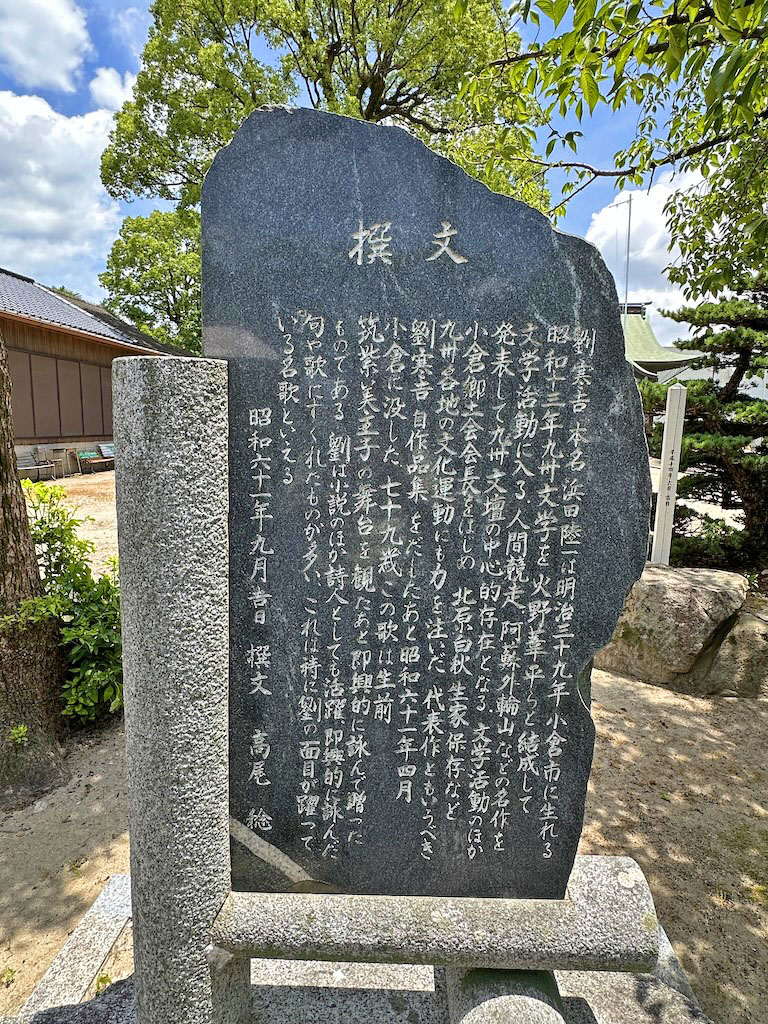 撰文
劉寒吉 本名 浜田陸一は明治三十九年小倉市に生れる
昭和十三年九州文学を火野葦平らと結成して
文学活動に入る 人間競走 阿蘇外輪山などの名作を
発表して九州文壇の中心的存在となる 文学活動のほか
小倉郷土会会長をはじめ 北原白秋 生家保存など
九州各地の文化運動にも力を注いだ 代表作ともいうべき
劉寒吉自作品集をだしたあと昭和六十一年四月
小倉に没した 七十九歳 この歌は生前
筑紫美主子の舞台を観たあと即興的に詠んで贈った
ものである 劉は小説のほか詩人としても活躍 即興的に詠んだ
句や歌にすぐれたものが多く、これは特に劉の面目が躍って
いる名歌といえる
昭和六十一年九月吉日 撰文 高尾 稔